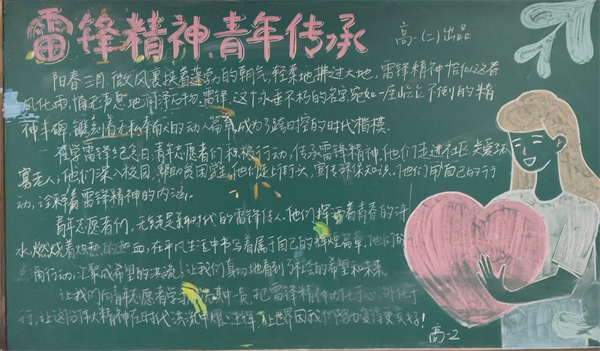 雷锋精神青年传承
高一(二)出品
阳春三月,微风裹挟着蓬勃的朝气,轻柔地拂过大地,雷锋精神恰似这春
风化雨,悄无声息地润泽万物。雷锋,这个永垂不朽的名字,宛如一座屹立不倒的精
神丰碑,镌刻着无私奉献的动人篇章,成为了跨时空的时代楷模。
在学雷锋纪念日,青年志愿者们积极行动,传承雷锋精神。他们走进社区,关爱孤
寡老人,他们深入校园,帮助贫困学生,他们走上街头,宣传环保知识。他们用自己的行
动,诠释着雷锋精神的内涵。
青年志愿者们,无疑是新时代的雷锋传人。他们挥洒着青春的汗
水,燃烧着炽热的热血,在平凡生活中书写着属于自己的辉煌篇章,他们的
行动,汇聚成希望的洪流,让我们真切地看到了社会的希望和未来。
让我们向青年志愿者学习,把雷锋精神内化于心,外化于
行,让这份伟大精神在时代洪流中,让世界因我们努力变得更美好!
高一2